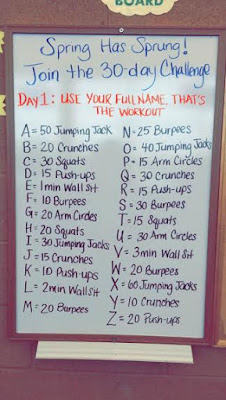 BOARD
Spring Has Sprung!
Join the 30-day Challenge
DAY 1: USE YOUR FULL NAME, THAT'S
THE WORKOUT
A = 50 Jumping Jack
B = 20 Crunches
C = 30 Squats
D = 15 Push-ups
E = 1 min Wall Sit
F = 10 Burpees
G = 20 Arm Circles
H = 20 Squats
I = 30 Jumping Jacks
J = 15 Crunches
K = 10 Push-ups
L = 2 min Wall Sit
M = 20 Burpees
N = 25 Burpees
O = 40 Jumping Jacks
P = 15 Arm Circles
Q = 30 Crunches
R = 15 Push-ups
S = 30 Burpees
T = 15 Squats
U = 30 Arm Circles
V = 3 min Wall Sit
W = 20 Burpees
X = 60 Jumping Jacks
Y = 10 Crunches
Z = 20 Push-ups